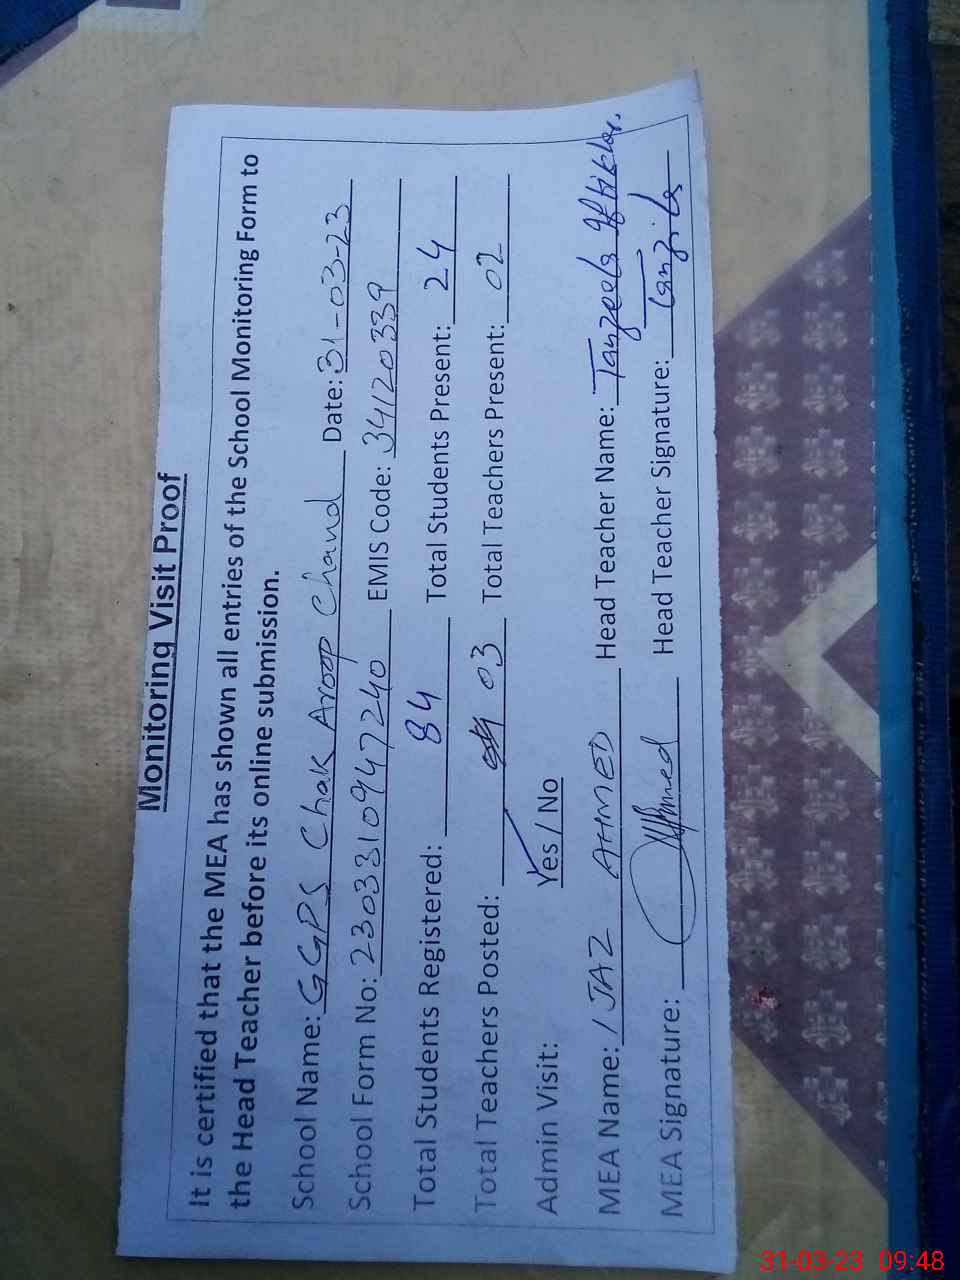 Monitoring Visit Proof
It is certified that the MEA has shown all entries of the School Monitoring Form to
the Head Teacher before its online submission.
School Name: GGPS Chak Aroop Chand Date: 31-03-23
School Form No: 2303310947240 EMIS Code: 34120339
Total Students Registered: 84 Total Students Present: 24
Total Teachers Posted: 03 Total Teachers Present: 02
Admin Visit: Yes / No
MEA Name: IJAZ AHMED Head Teacher Name: Tanzeela Iftikhar.
MEA Signature: Ahmed Head Teacher Signature: Tanzila
31-03-23 09:48